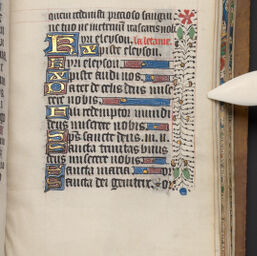 quem redemisti precioso sangui
ne tuo ne in eternum irascaris nob
Kyrie eleyson. la letanie.
Xpiste eleyson.
Kyri eleyson.
Xpiste audi nos.
Pater de celis deus mise
rere nobis.
Fili redemptor mundi
deus miserere nobis
Sps sancte deus. m. n.
Sancta trinitas unus
deus miserere nobis
Sancta maria
Sancta dei genitrix. or